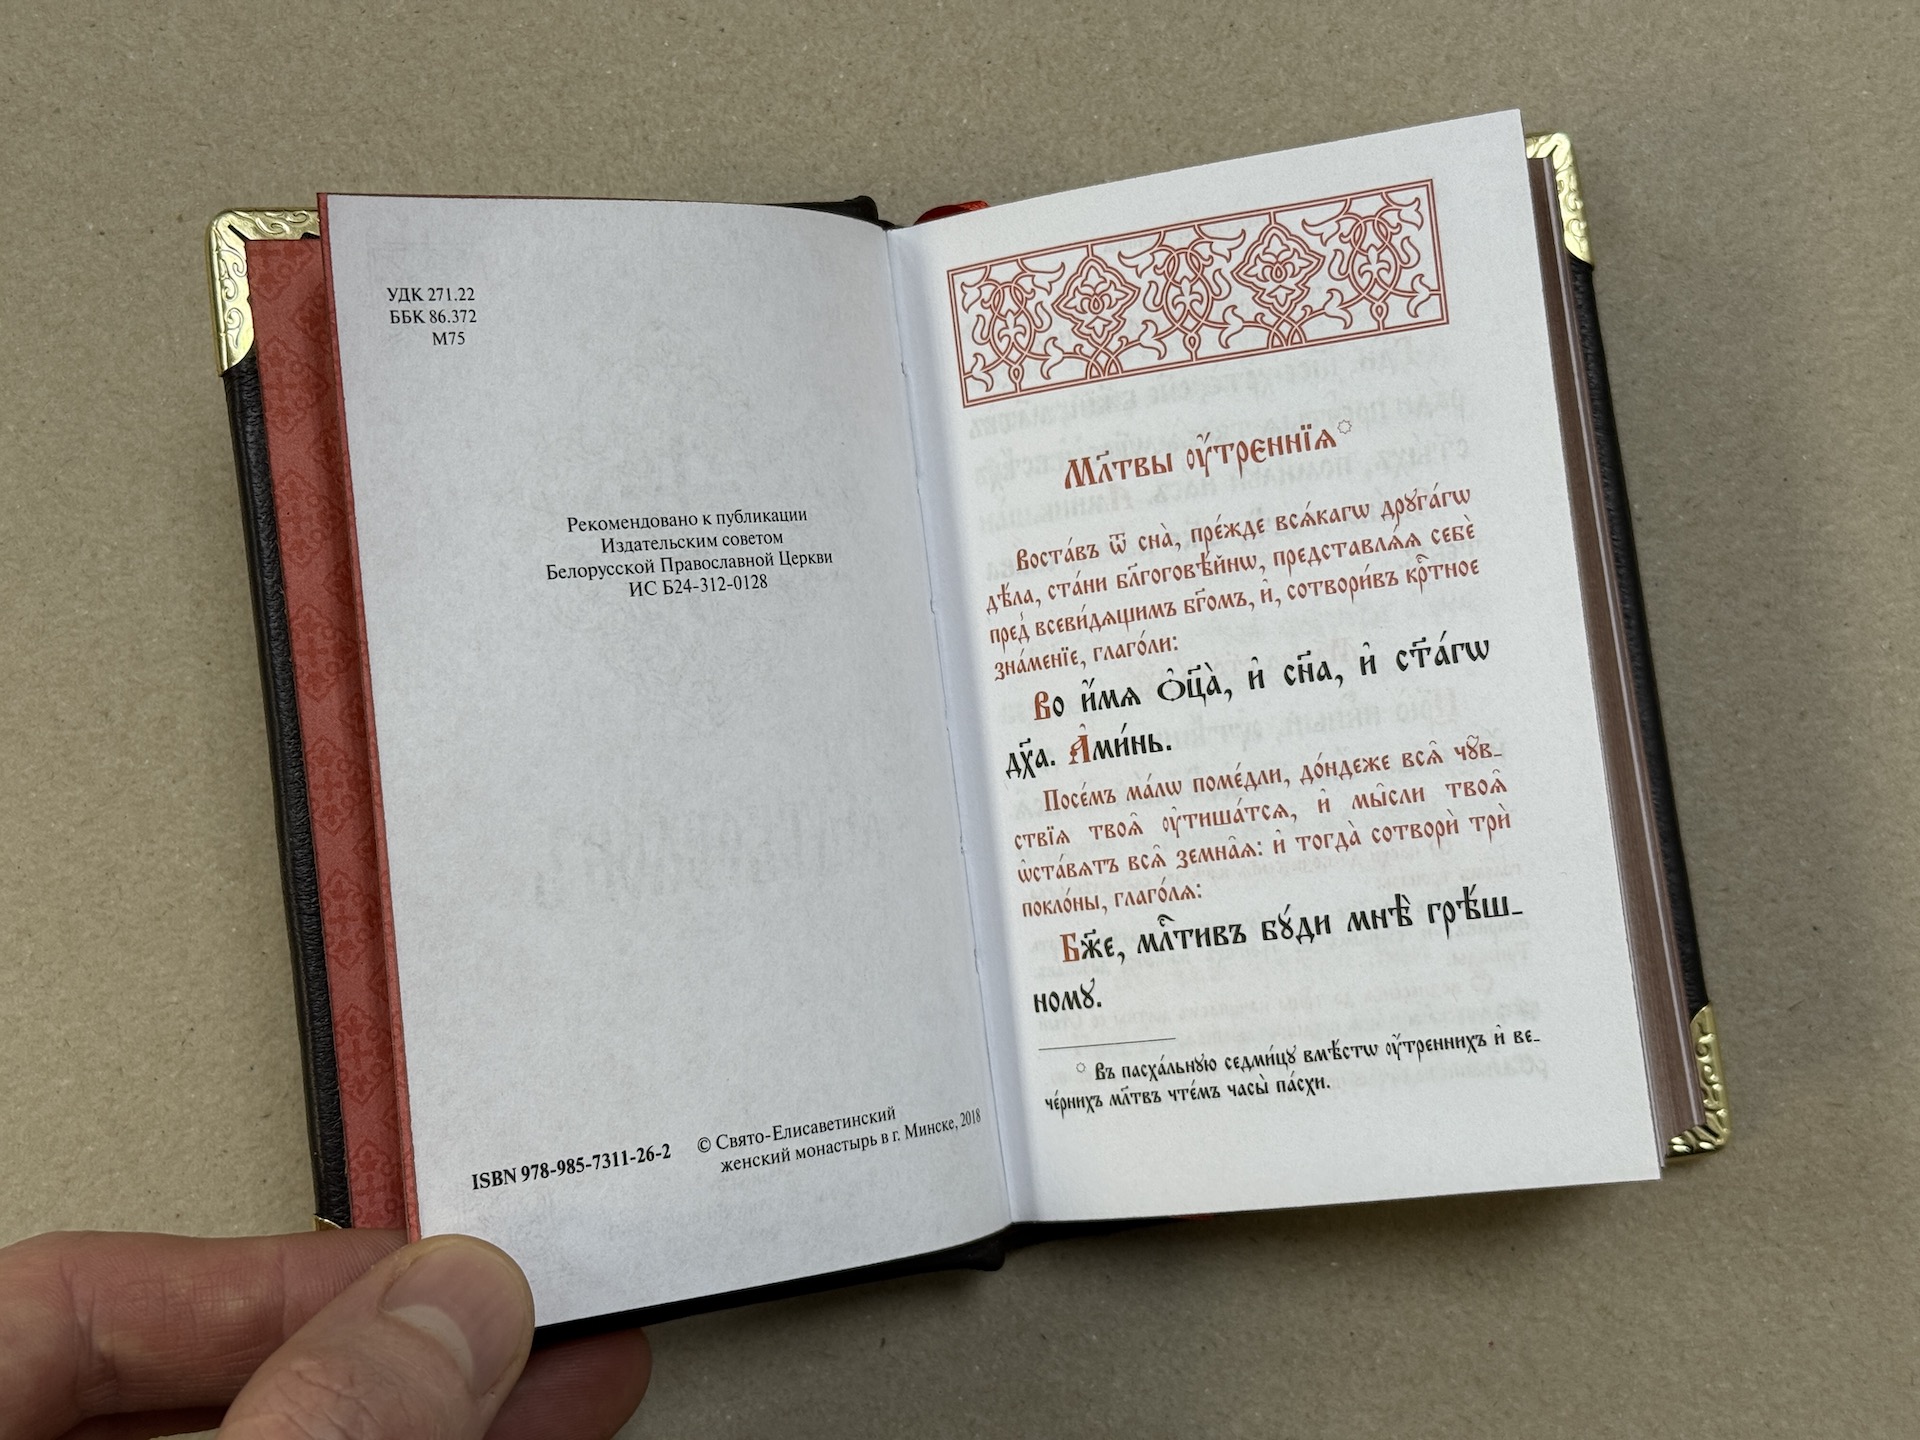 УДК 271.22
ББК 86.372
М75
Рекомендовано к публикации
Издательским советом
Белорусской Православной Церкви
ИС Б24-312-0128
ISBN 978-985-7311-26-2
© Свято-Елисаветинский
женский монастырь в г. Минске, 2018
Мл҃твы ᲂу҆́трєннїѧ*
Воста́въ ѿ сна̀, пре́жде всѧ́кагѡ дрꙋга́гѡ
дѣ́ла, ста́ни бл҃гоговѣ́йнѡ, представлѧ́ѧ себѐ
пред̾ всеви́дѧщимъ бг҃омъ, и҆, сотвори́въ крⷭ҇тное
зна́менїе, глаго́ли:
Во и҆́мѧ ѻ҆ц҃а̀, и҆ сн҃а, и҆ ст҃а́гѡ
дх҃а. А҆ми́нь.
Посе́мъ ма́лѡ поме́дли, до́ндеже всѧ̑ чꙋ̑в-
ствїѧ твоѧ̑ ᲂу҆тиша́тсѧ, и҆ мы̑сли твоѧ̑
ѡ҆ста́вѧтъ всѧ̑ земна̑ѧ: и҆ тогда̀ сотворѝ трѝ
покло́ны, глаго́лѧ:
Бж҃е, млⷭ҇тивъ бꙋ́ди мнѣ̀ грѣ́ш-
номꙋ.
* Въ пасха́льнꙋю седми́цꙋ вмѣ́стѡ ᲂу҆́треннихъ и҆ ве-
че́рнихъ мл҃твъ чте́мъ часы̀ па́схи.